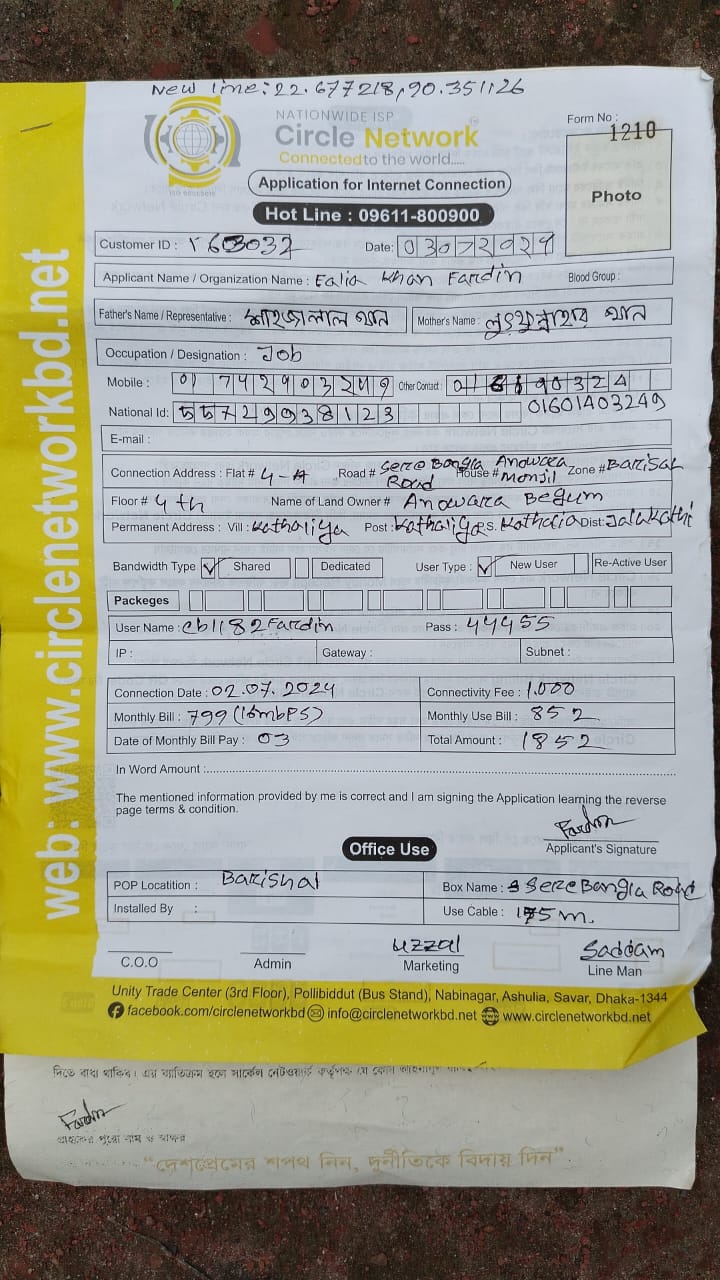 New line: 22.677218,90.351126
NATIONWIDE ISP
Circle Network
Connected to the world.....
Form No :
1210
Photo
Application for Internet Connection
Hot Line : 09611-800900
Customer ID :
Date: 03072024
Applicant Name / Organization Name : Ealia Khan Fardin Blood Group :
Father's Name / Representative : শাহজালাল খান Mother's Name : লুৎফুন্নাহার খান
Occupation / Designation : Job
Mobile : Other Contact :
01601403249
National Id: 55729938123
E-mail :
Connection Address : Flat # 4-A Road # Sere Bangla Road House # Anowara Monjil Zone # Barisal
Floor # 4th Name of Land Owner # Anowara Begum
Permanent Address : Vill : Kathaliya Post : Dist: Jalakathi
Bandwidth Type ✓ Shared Dedicated User Type : ✓ New User Re-Active User
Packeges
User Name : cb1182Fardin Pass : 44455
IP : Gateway : Subnet :
Connection Date : 02.07.2024 Connectivity Fee : 1.000
Monthly Bill : 799 (16mbPS) Monthly Use Bill : 852
Date of Monthly Bill Pay : 03 Total Amount : 1852
In Word Amount :
The mentioned information provided by me is correct and I am signing the Application learning the reverse
page terms & condition.
Fardin
Applicant's Signature
Office Use
POP Locatition : Barishal Box Name : Sere Bangla Road
Installed By : Use Cable : 175m.
Uzzal Saddam
C.O.O Admin Marketing Line Man
Unity Trade Center (3rd Floor), Pollibiddut (Bus Stand), Nabinagar, Ashulia, Savar, Dhaka-1344
facebook.com/circlenetworkbd info@circlenetworkbd.net www.circlenetworkbd.net
web: www.circlenetworkbd.net
দিতে বাধ্য থাকিব। এর ব্যতিক্রম হলে সার্কেল নেটওয়ার্ক কর্তৃপক্ষ যে কোন
Fardin
গ্রাহকের পুরো নাম ও স্বাক্ষর
“দেশপ্রেমের শপথ নিন, দুর্নীতিকে বিদায় দিন”